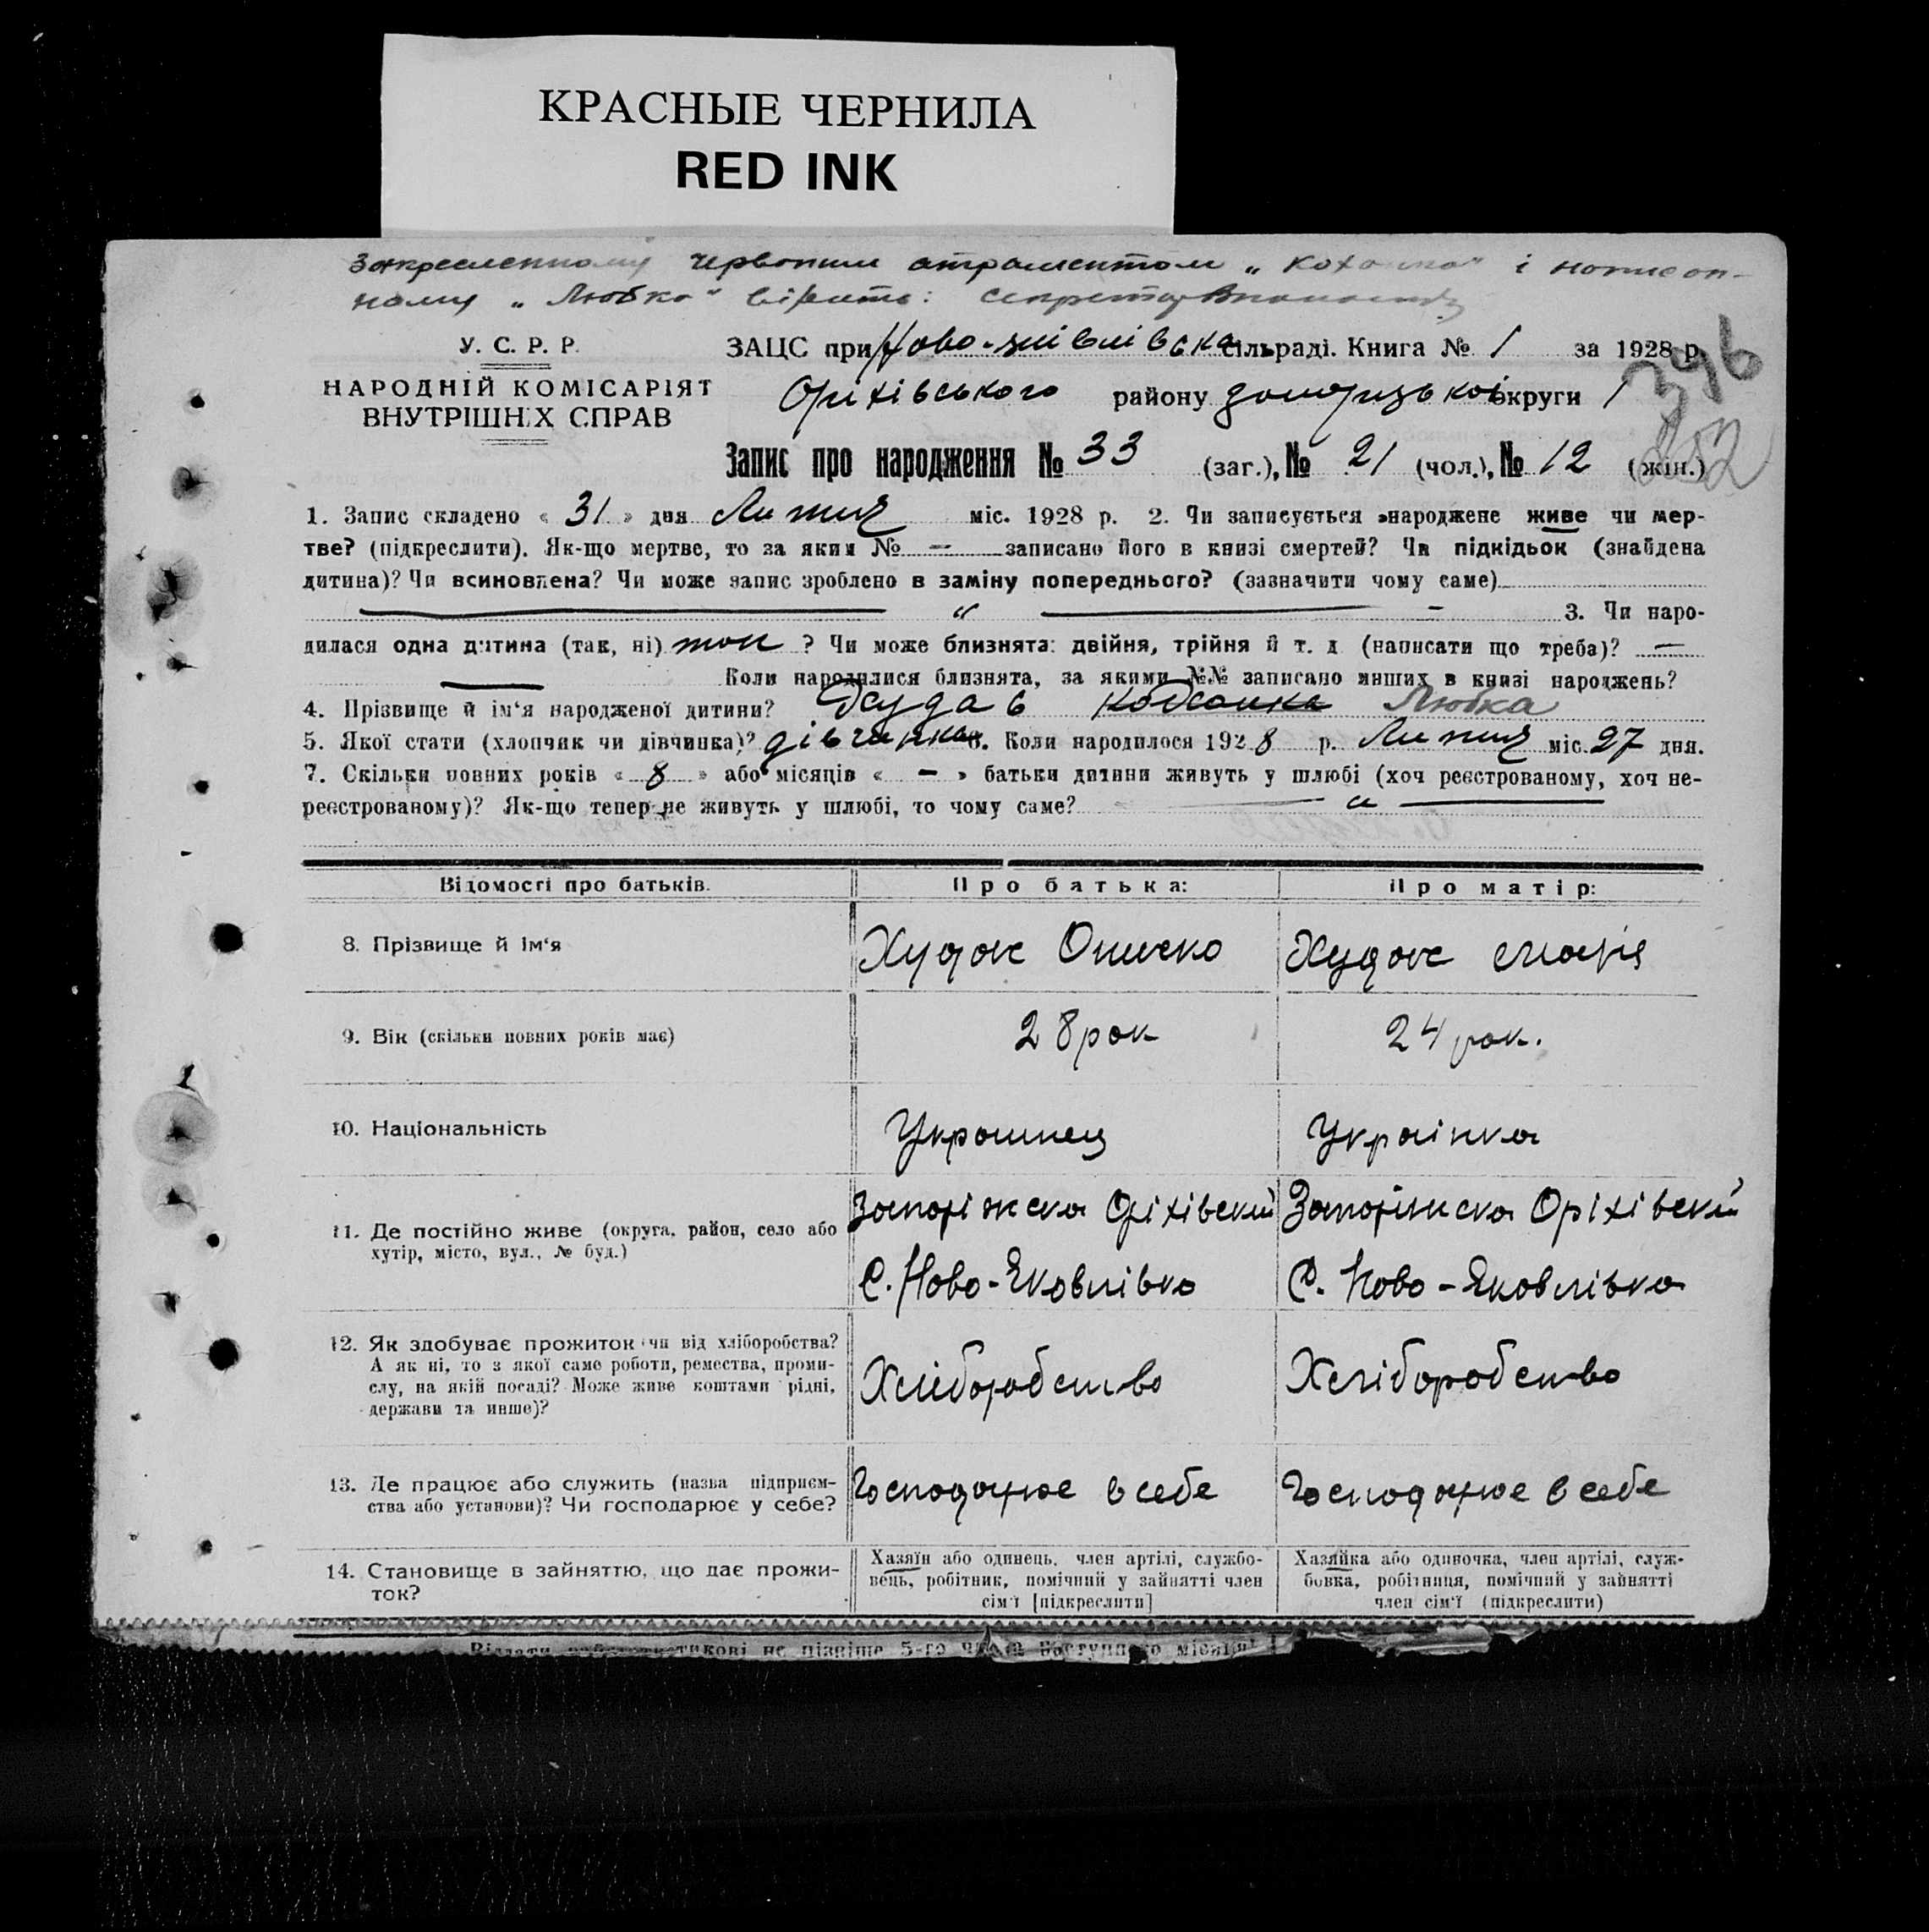 КРАСНЫЕ ЧЕРНИЛА
RED INK
Закресленному червоним атраментом „Кохана" і написан-
ному „Любка" вірить: секретар
У. С. Р. Р.
НАРОДНІЙ КОМІСАРІЯТ
ВНУТРІШНІХ СПРАВ
ЗАЦС при сільраді. Книга № 1 за 1928 р.
Оріхівського району округи 1
396
252
Запис про народження № 33 (заг.), № 21 (чол.), № 12 (жін.)
1. Запис складено « 31 » дня Липня міс. 1928 р. 2. Чи записується народжене живе чи мер-
тве? (підкреслити). Як-що мертве, то за яким № — записано його в книзі смертей? Чи підкідьок (знайдена
дитина)? Чи всиновлена? Чи може запис зроблено в заміну попереднього? (зазначити чому саме)
— „ — 3. Чи наро-
дилася одна дитина (так, ні) так ? Чи може близнята: двійня, трійня й т. д. (написати що треба)? —
— Коли народилися близнята, за якими №№ записано инших в книзі народжень?
4. Прізвище й ім‘я народженої дитини? Любка
5. Якої стати (хлопчик чи дівчинка)? дівчинка 6. Коли народилося 1928 р. Липня міс. 27 дня.
7. Скільки повних років « 8 » або місяців « — » батьки дитини живуть у шлюбі (хоч реєстрованому, хоч не-
реєстрованому)? Як-що тепер не живуть у шлюбі, то чому саме? — „ —
Відомості про батьків. Про батька: Про матір:
8. Прізвище й ім‘я Худак Ониско Худак Марія
9. Вік (скільки повних років має) 28 рок 24 рок.
10. Національність Украинец Українка
11. Де постійно живе (округа, район, село або
хутір, місто, вул., № буд.)
Запоріжска Оріхівский Запоріжска Оріхівский
С. Ново-Яковлівка С. Ново-Яковлівка
12. Як здобуває прожиток чи від хліборобства?
А як ні, то з якої саме роботи, ремества, проми-
слу, на якій посаді? Може живе коштами рідні,
держави та инше)?
Хліборобство Хліборобство
13. Де працює або служить (назва підприєм-
ства або установи)? Чи господарює у себе?
Господарює в себе Господарює в себе
14. Становище в зайняттю, що дає прожи-
ток?
Хазяїн або одинець, член артілі, службо-
вець, робітник, помічний у зайнятті член
сім‘ї [підкреслити]
Хазяйка або одиночка, член артілі, служ-
бовка, робітниця, помічний у зайнятті
член сім‘ї (підкреслити)
не пізніше 5-го